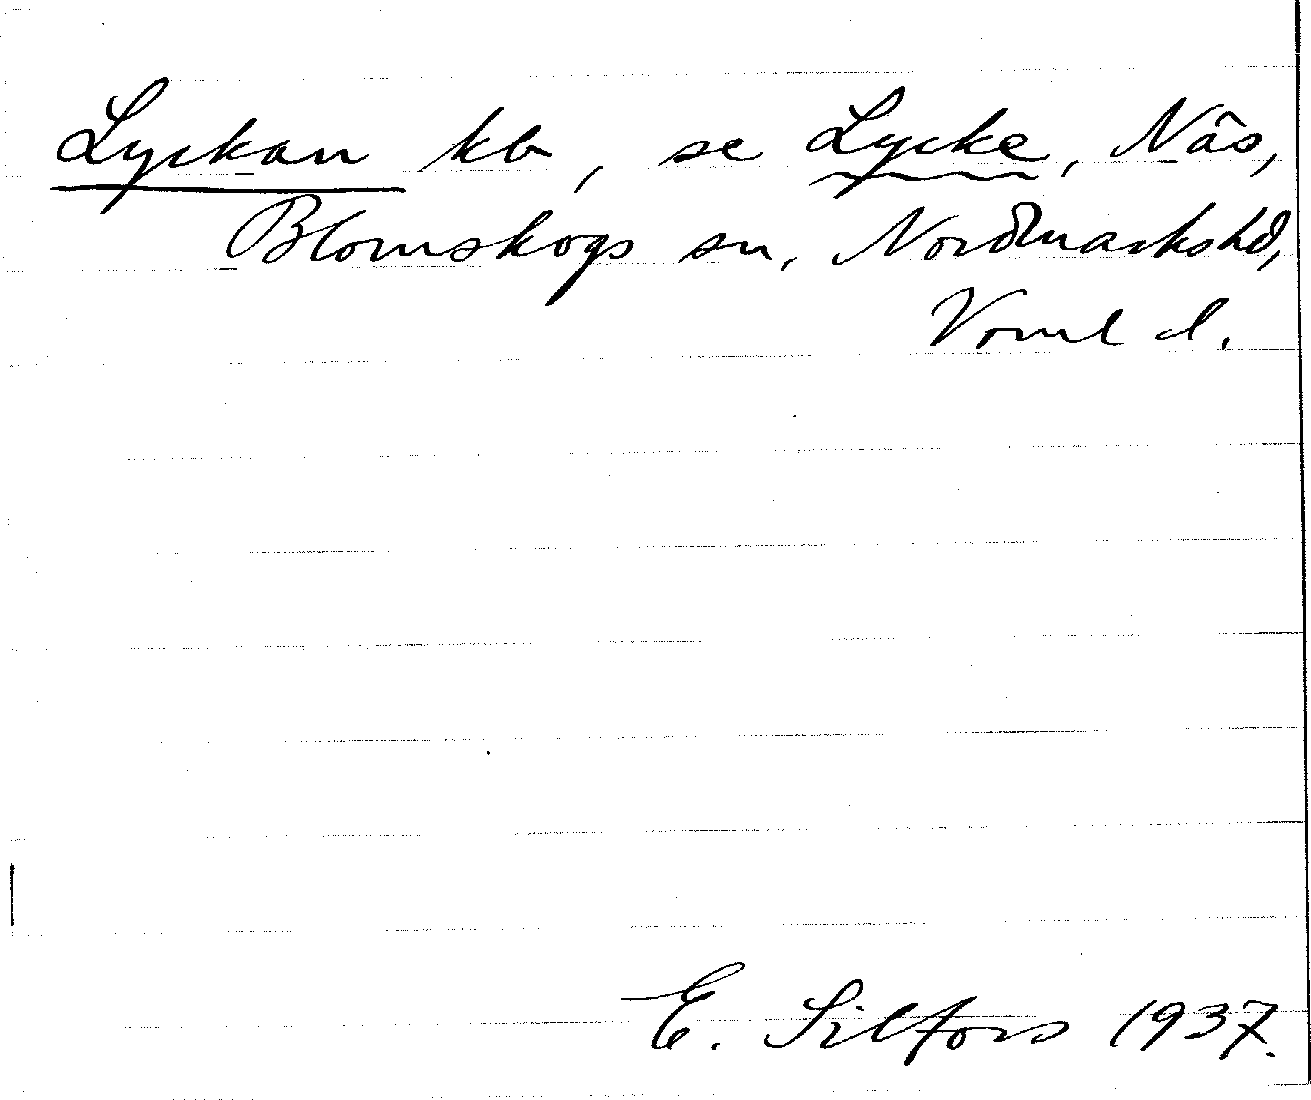 Lyckan kb, se Lycke, Näs,
Blomskogs sn, Nordmarks hd,
Vrml d.
E. Silfors 1937.